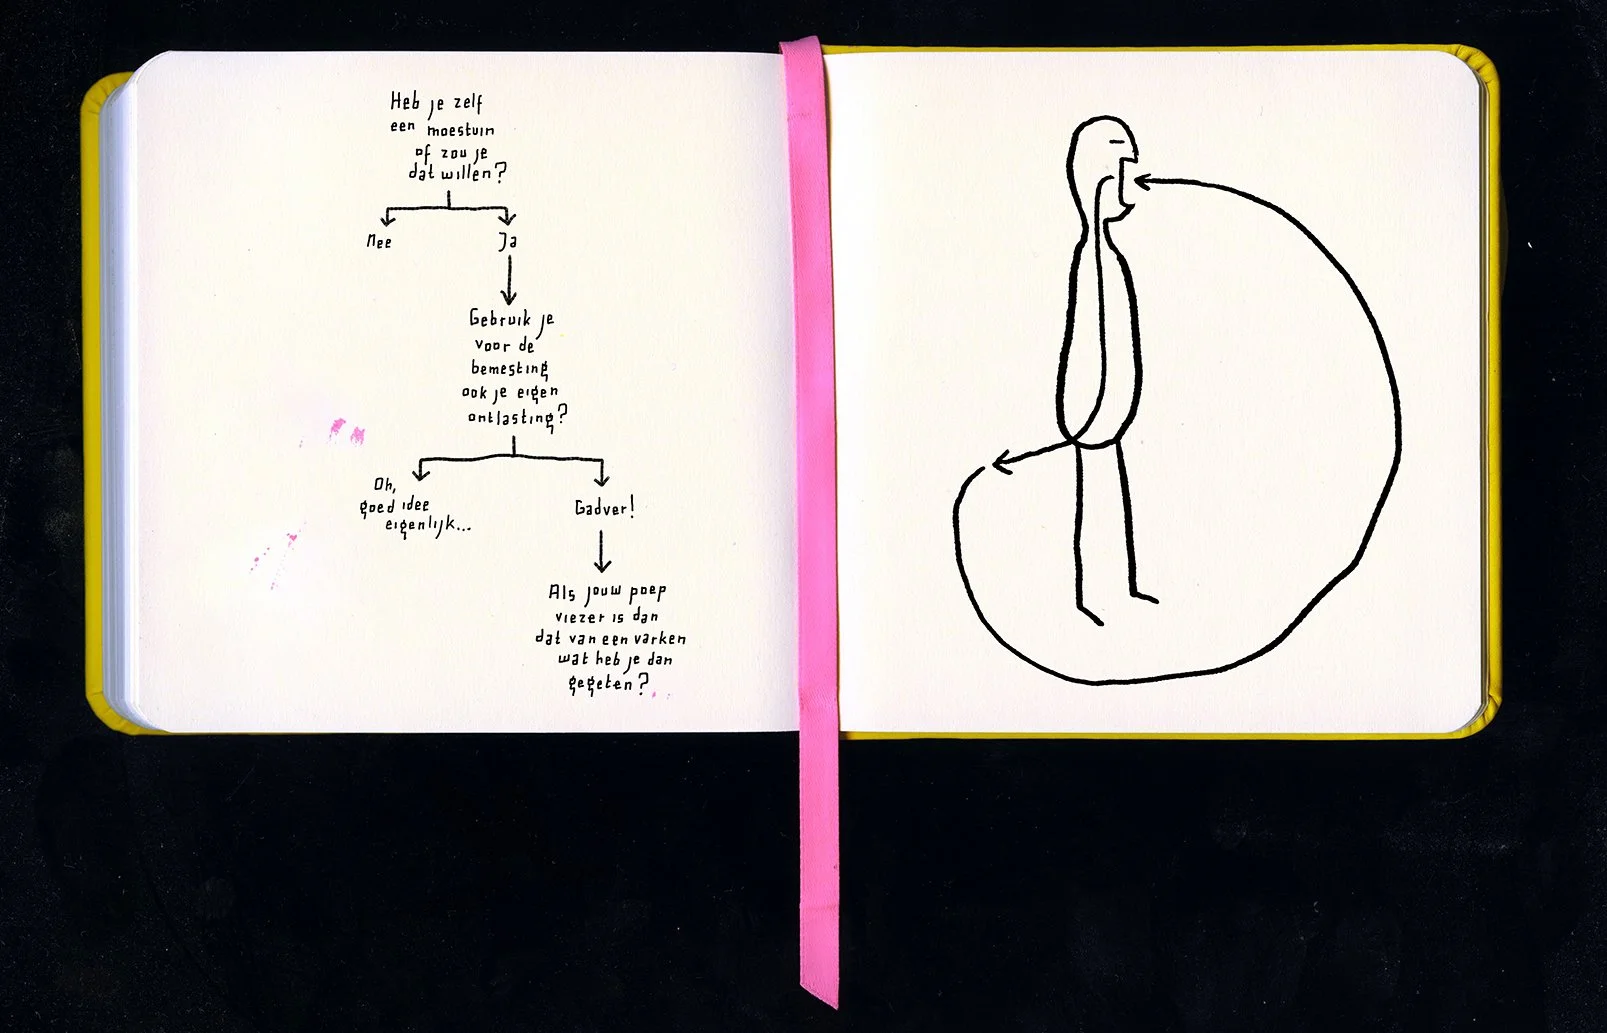 Heb je zelf
een moestuin
of zou je
dat willen?
Nee
Ja
Gebruik je
voor de
bemesting
ook je eigen
ontlasting?
Oh,
goed idee
eigenlijk...
Gadver!
Als jouw poep
viezer is dan
dat van een varken
wat heb je dan
gegeten?